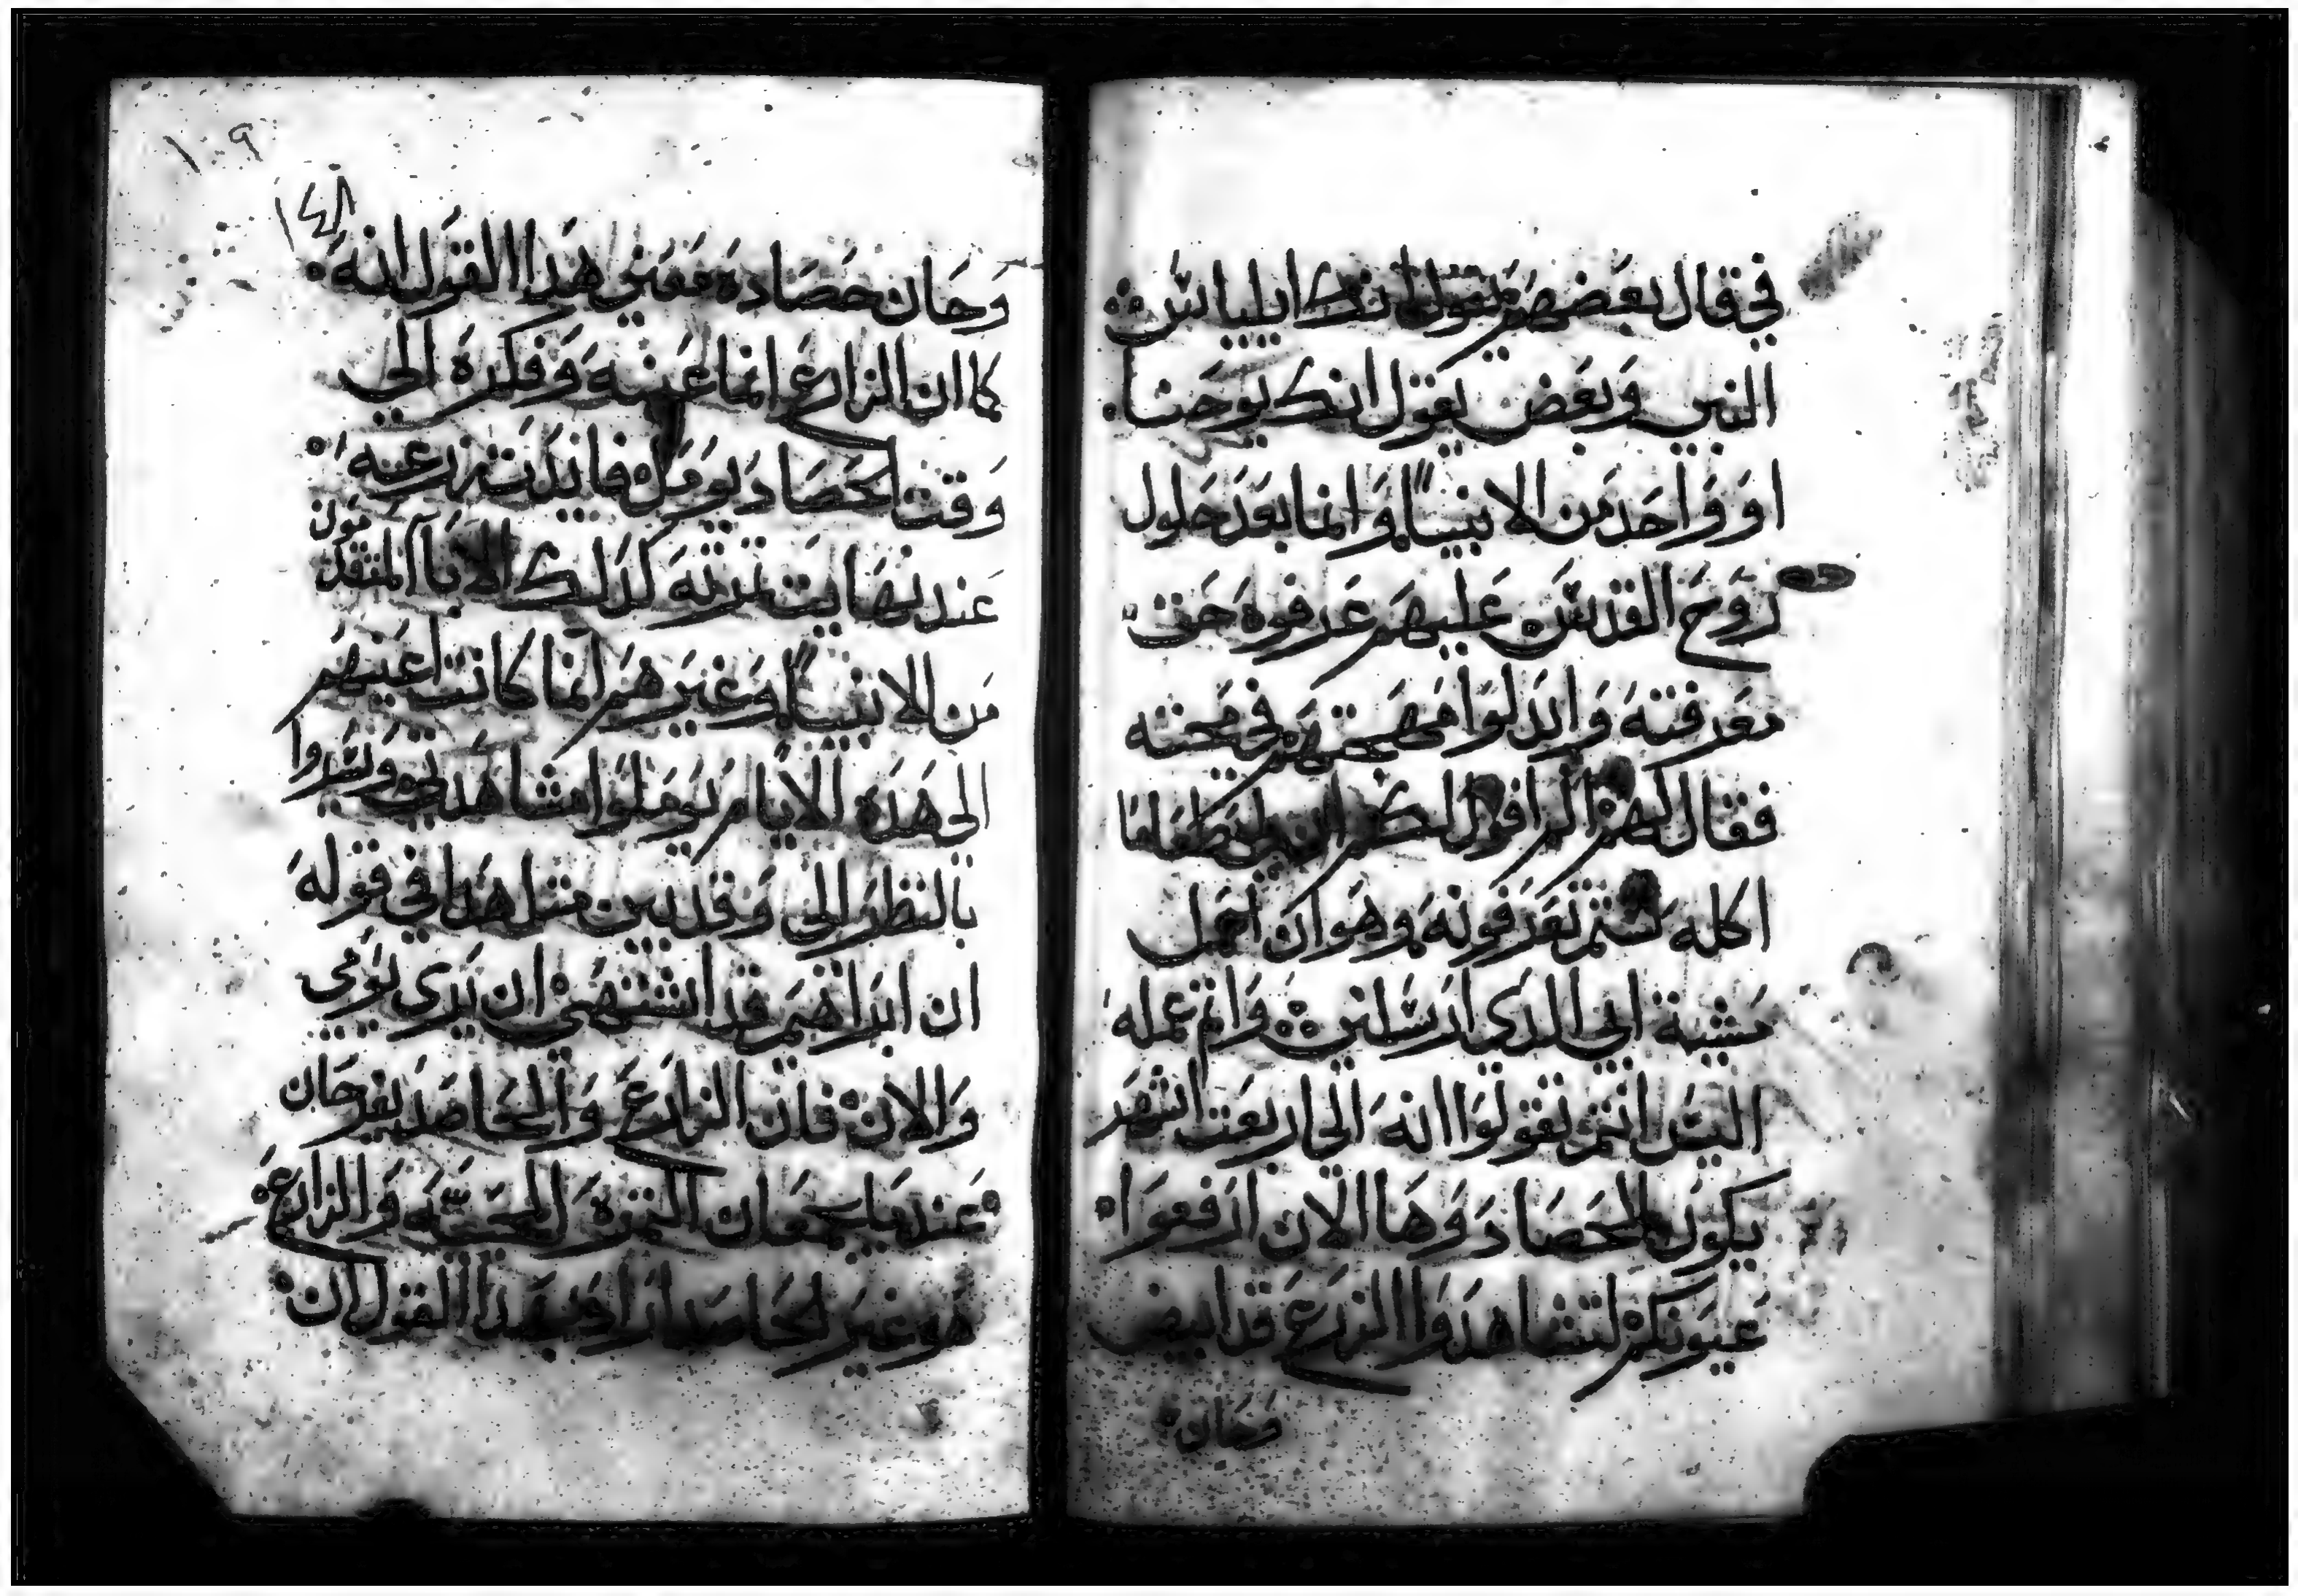 في قال بعضهم يقول انك ايلياس
النبي وبعض يقول انك يوحنا
او واحد من الانبيا وانما بعد حلول
روح القدس عليهم عرفوه حق
معرفته وابدلوا مهجتهم في محبته
فقال لهم اني اقول لكم ان لي طعاما
اكله لستم تعرفونه وهو ان اعمل
مشية ابي الدي ارسلني واتم عمله
اليس انتم تقولوا انه الي اربعت اشهر
يكون الحصاد وها الان ارفعوا
عيونكم لتشاهدوا الزرع قد ابيض
وحان
١٠٩
١٤٨
وحان حصاده فمعني هدا القول انه
كما ان الزارع انما عينه وفكره الي
وقت الحصاد يومل فايدت زرعه
عند نهايت تربته كدلك الابا المتقدمون
من الانبيا وغيرهم انما كانت اعينهم
الي هده الايام يوملوا مشاهدتي ويسروا
بالنظر الي وقد بين مثل هدا في قوله
ان ابراهيم قد اشتهي ان يري يومي
والان فان الزارع والحاصد يفرحان
عندما يجمعان الثمرة المحييه والزارع
هو غير الحاصد اراد بهدا القول ان